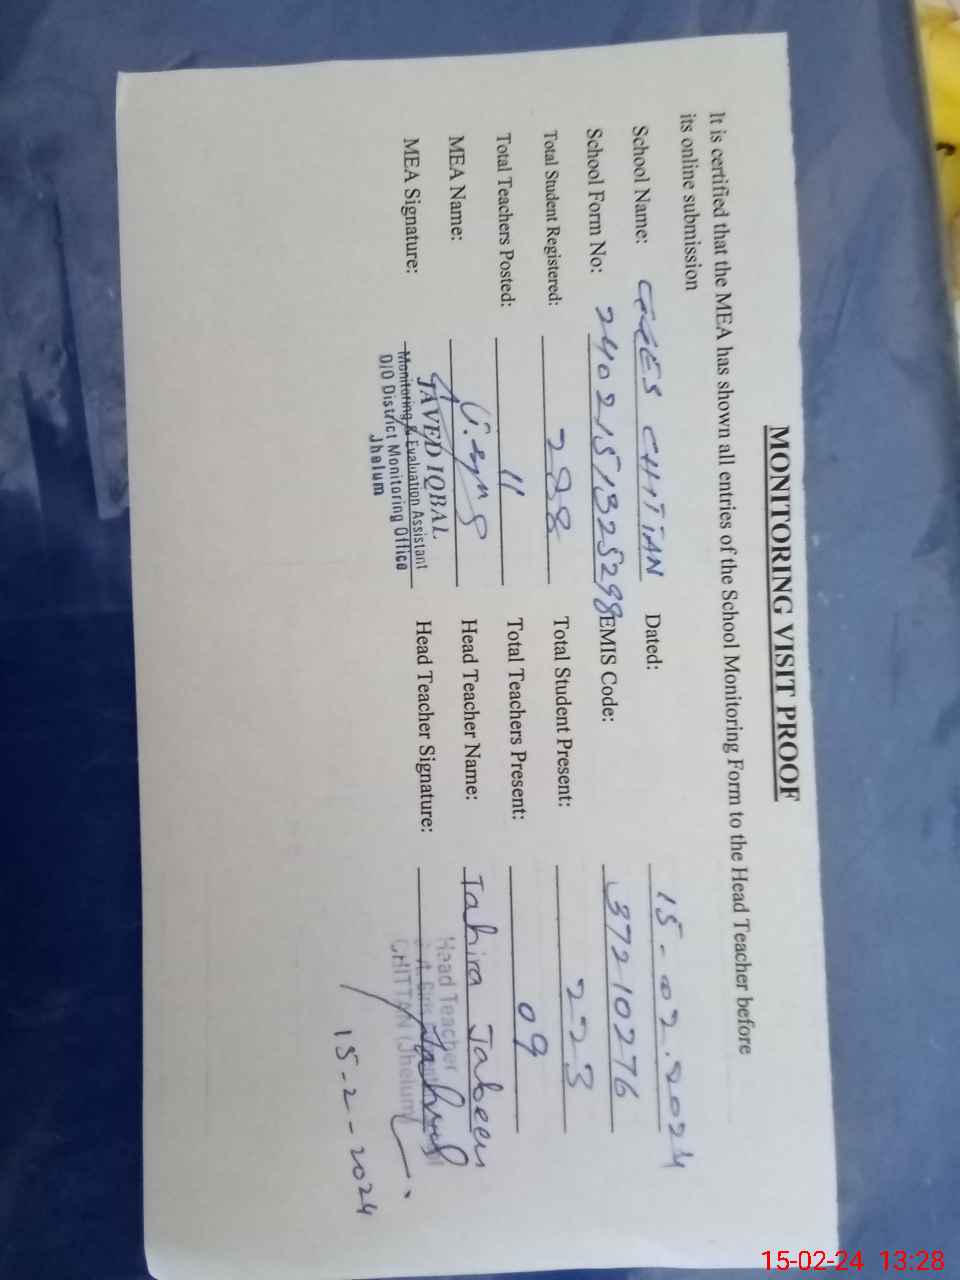 MONITORING VISIT PROOF
It is certified that the MEA has shown all entries of the School Monitoring Form to the Head Teacher before
its online submission
School Name: CHITIAN Dated: 15-02.2024
School Form No: 2402151325298 EMIS Code: 37210276
Total Student Registered: 288 Total Student Present: 223
Total Teachers Posted: 11 Total Teachers Present: 09
MEA Name: Head Teacher Name: Tahira Jabeen
MEA Signature: Head Teacher Signature:
JAVED IQBAL
Monitoring & Evaluation Assistant
O/O District Monitoring Office
Jhelum
Head Teacher
CHITTAN (Jhelum)
15-2-2024
15-02-24 13:28